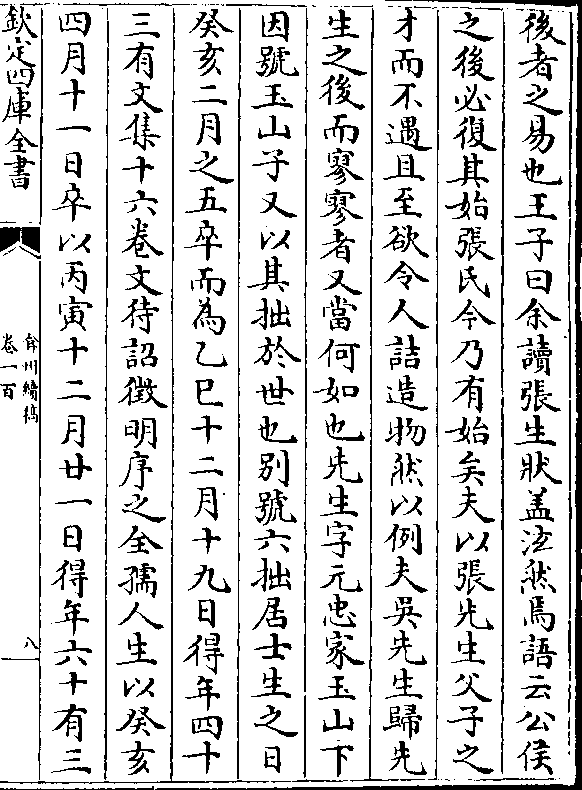 後者之易也王子曰余讀張生狀盖泫然焉語云公侯
之後必復其始張氏今乃有始矣夫以張先生父子之
才而不遇且至欲令人詰造物然以例夫吳先生歸先
生之後而寥寥者又當何如也先生字元忠家玉山下
因號玉山子又以其拙於世也别號六拙居士生之日
癸亥二月之五卒而為乙巳十二月十九日得年四十
三有文集十六卷文待詔徴明序之全孺人生以癸亥
四月十一日卒以丙寅十二月廿一日得年六十有三
欽定四庫全書
弇州續稿
卷一百
八